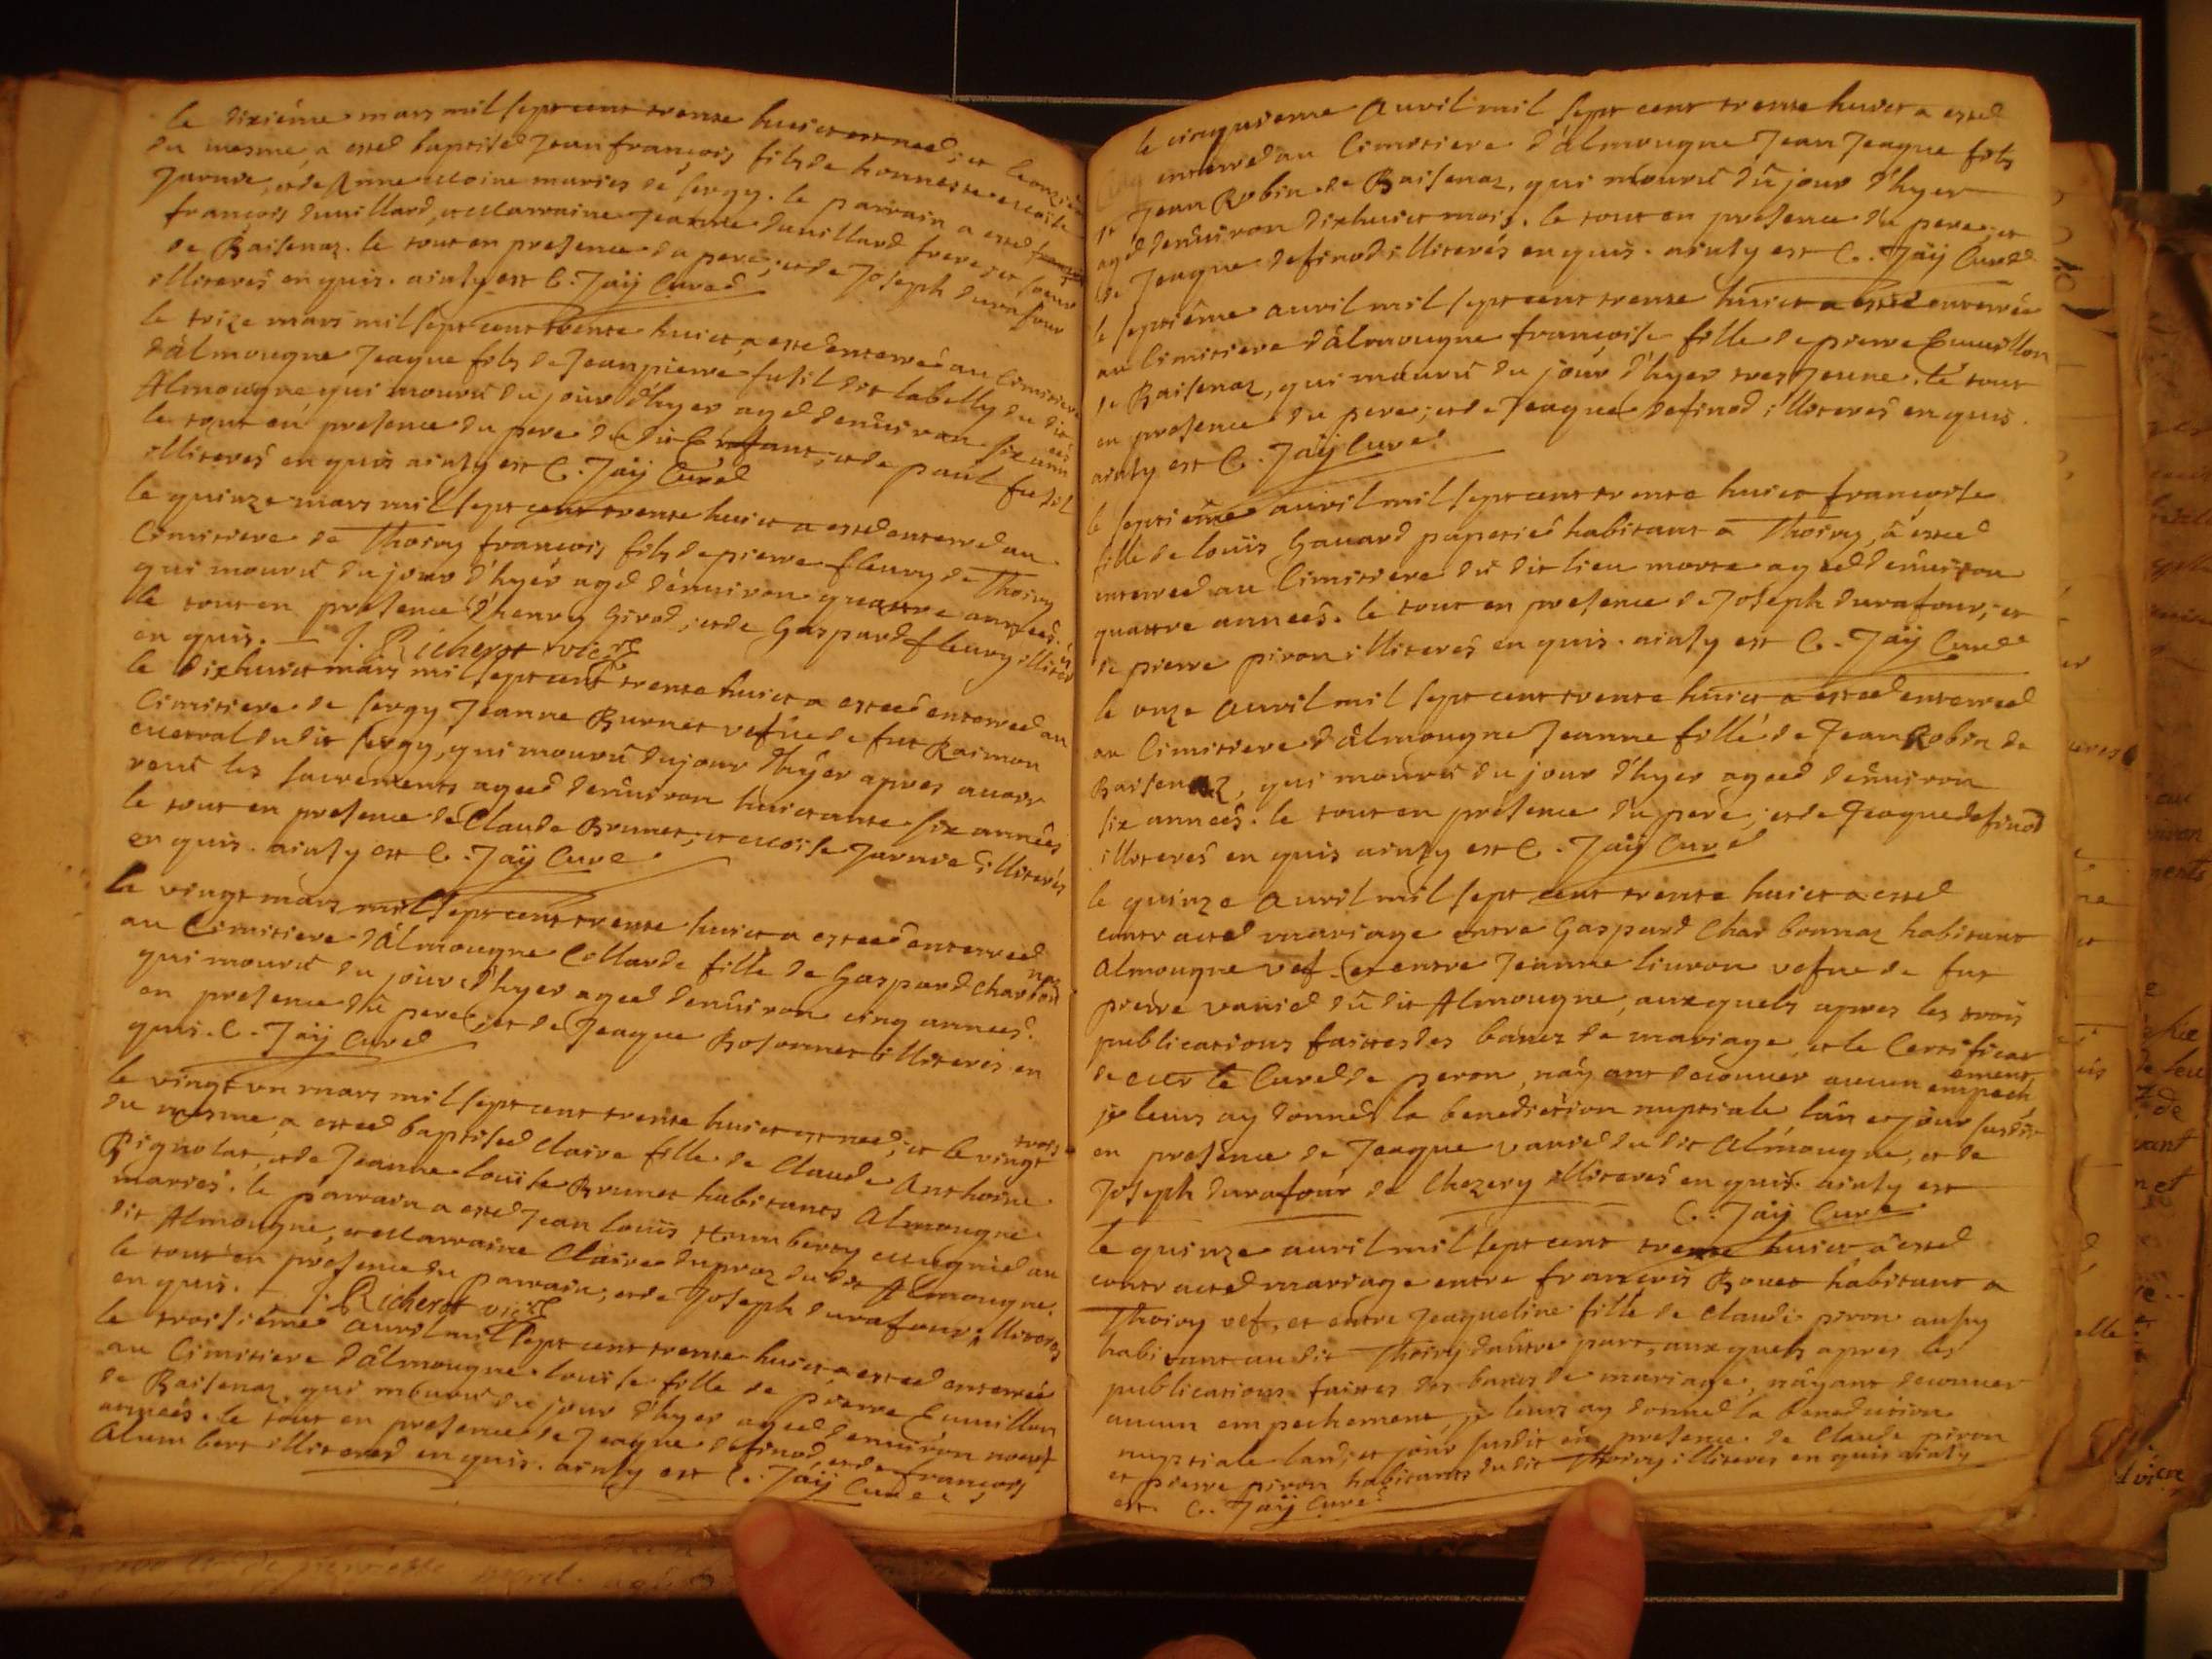 le dixiéme mars mil sept cent trente huict est need, et le onzie
du mesme, a ested baptised Jean françois fils de honneste Moise
Jarnire, et de Anne Moine maries de sergy. le parrain a ested
françois duuillard, et Marraine Jeanne duuillard frere, et soeur
de Baisenaz. le tout en presence du pere, et de Joseph durafour
illiterés enquis. ainsy est C. Jaÿ Cured
le trize mars mil sept cent trente huict, a ested enterred au Cimitiere
d'âlmougne Jeaque fils de Jean pierre fusil dit labelly du dit
Almougne qui mourut du jour d'hyer aged d'enuiron six ann
ees
le tout en presence du pere du dit Enfant, et de paul fusil
illiterés enquis ainsy est C. Jaÿ Cured
le quinze mars mil sept cent trente huict a ested enterred au
Cimitiere de Thoiry françois fils de pierre fleury de Thoiry
qui mourut du jour d'hyer aged d'enuiron quattre années.
le tout en presence d'henry Girod, et de Gaspard fleury illiter
és
en quis. — J. Richerot vice
le dixhuict mars mil sept cent trente huict a esteed enterreed au
Cimitiere de sergy Jeanne Burnet vefue de fut Raimon
du dit sergy, qui mourut du jour d'hyer apres auoir
receut les sacrements ageed d'enuiron huictante six années
le tout en presence de Claude Brunet, et Moise Jarnire illiterés
en quis. ainsy est C. Jaÿ Cure
le vingt mars mil sept cent trente huict a esteed enterreed
au Cimitiere d'âlmougne Collarde fille de Gaspard Charbon
naz
qui mourut du jour d'hyer ageed d'enuiron cinq années.
en presence du pere, et de Jeaque Bosonnet illiterés en
quis. C. Jaÿ Cured
le vingt vn mars mil sept cent trente huict est need, et le vingt
trois
du mesme, a esteed baptiseed Claire fille de Claude Anthoine
Pignolat, et de Jeanne Louise Brunet habitants Almougne
mariés. le parrain a ested Jean Louïs Humberty
dit Almougne, et Marraine Claire dupraz du dit Almougne.
le tout en presence du parrain, et de Joseph durafour illiterés
en quis. J. Richerot vice
le troisiéme auril mil sept cent trente huict, a esteed enterrée
au Cimitiere d'âlmougne louise fille de pierre Emuillon
de Baisenaz, qui mourut du jour d'hyer ageed d'enuiron neuf
années. le tout en presence de Jeaque definod, et de françois
Alumbert illitered en quis. ainsy est C. Jaÿ Cure
le cinquieme Auril mil sept cent trente huict a ested
enterred au Cimitiere d'âlmougne Jean Jeaque fils
de Jean Robin de Baisenaz, qui mourut du jour d'hyer
aged d'enuiron dixhuict mois. le tout en presence du pere, et
de Jeaque definod illiterés enquis. ainsy est C. Jaÿ Cured
le septiême auril mil sept cent trente huict a ested enterrée
au Cimitiere d'âlmougne françoise fille de pierre Emuillon
de Baisenaz, qui mourut du jour d'hyer tres Jeune. le tout
en presence du pere, et de Jeaque definod illiterés enquis.
ainsy est C. Jaÿ Cured
le septiéme auril mil sept cent trente huict françoise
fille de louïs Gauard papetier habitant a Thoiry, a esteed
enterreed au Cimitiere du dit lieu morte ageed d'enuiron
quattre années. le tout en presence de Joseph durafour, et
de pierre piron illiterés enquis. ainsy est C. Jaÿ Cured
le onze Auril mil sept cent trente huict a esteed enterreed
au Cimitiere d'âlmougne Jeanne fille de Jean Robin de
Baisenaz, qui mourut du jour d'hyer ageed d'enuiron
six années. le tout en présence du pere, et de Jeaque definod
illiterés en quis ainsy est C. Jaÿ Cured
le quinze Auril mil sept cent trente huict a ested
contracted mariage entre Gaspard Charbonnaz habitant
Almougne vef. et entre Jeanne liuron vefue de fut
pierre vauied du dit Almougne, auxquels apres les trois
publications faittes des bancs de mariage, et le Certificat
de Mr le Cured de peron, n'aÿant decouuer aucun empech
ement
je leurs ay donned la benediction nuptiale lan et jour susdit
en presence de Jeaque vauied du dit Almougne, et de
Joseph durafour de Chezery illiterés enquis. ainsy est
C. Jaÿ Cure
le quinze auril mil sept cent trente huict a ested
contracted mariage entre françois Bouet habitant a
Thoiry vef, et entre Jeaqueline fille de Claude piron aussy
habitant au dit Thoiry d'autre part, auxquels apres les
publications faittes des bancs de mariage, n'ayant decouuer
aucun empechement, je leurs ay donned la benediction
nuptiale lan, et jour susdit en presence de Claude piron
et pierre piron habitants du dit Thoiry illiteres en quis ainsy
est. C. Jaÿ Cured